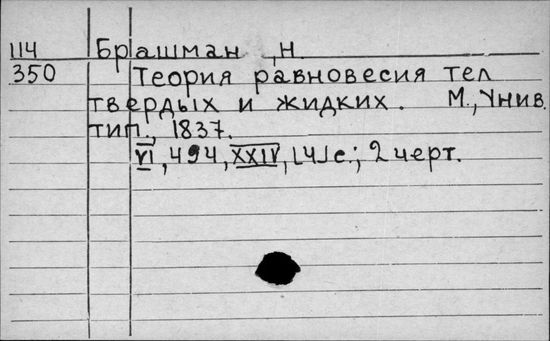 114 Брашман, Н
350 Теория равновесия тел
твердых и жидких. М., Унив.
тип., 1837.
VI, 494, XXIV, [4] с.; 2 черт.